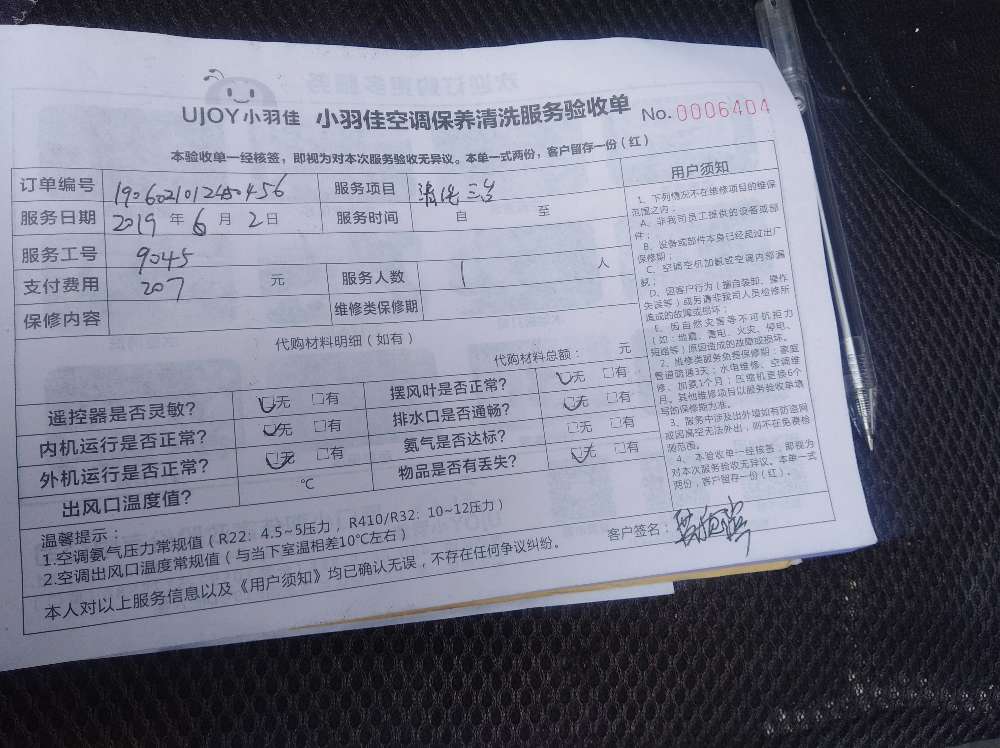 UJOY小羽佳 小羽佳空调保养清洗服务验收单 No.0006404
本验收单一经核签，即视为对本次服务验收无异议。本单一式两份，客户留存一份（红）
订单编号 190602101240456 服务项目 清洗三台
服务日期 2019年6月2日 服务时间 自 至
服务工号 9045
支付费用 207 元 服务人数 1 人
保修内容 维修类保修期
代购材料明细（如有）
代购材料总额： 元
遥控器是否灵敏？ 无 有 摆风叶是否正常？ 无 有
内机运行是否正常？ 无 有 排水口是否通畅？ 无 有
外机运行是否正常？ 无 有 氨气是否达标？ 无 有
出风口温度值？ ℃ 物品是否有丢失？ 无 有
温馨提示：
1.空调氨气压力常规值（R22：4.5~5压力，R410/R32：10~12压力）
2.空调出风口温度常规值（与当下室温相差10℃左右）
本人对以上服务信息以及《用户须知》均已确认无误，不存在任何争议纠纷。
客户签名：
用户须知
1、下列情况不在维修项目的维保
范围之内：
A、非我司员工提供的设备或部
件；
B、设备或部件本身已经超过出厂
保修期；
C、空调空机加氨或空调内部漏
氨；
D、因客户行为（擅自装卸、操作
失误等）或另请非我司人员检修所
造成的故障或损坏；
E、因自然灾害等不可抗拒力
（如：地震、雷电、火灾、停电、
短路等）原因造成的故障或损坏。
2、维修类服务免费保修期：家庭
管道疏通3天；水电维修、空调维
修、加氨1个月；压缩机更换6个
月。其他维修项目以服务验收单填
写的保修期为准。
3、服务中涉及出外墙如有防盗网
或因高空无法外出，则不在免费检
测范围。
4、本验收单一经核签，即视为
对本次服务验收无异议。本单一式
两份，客户留存一份（红）。